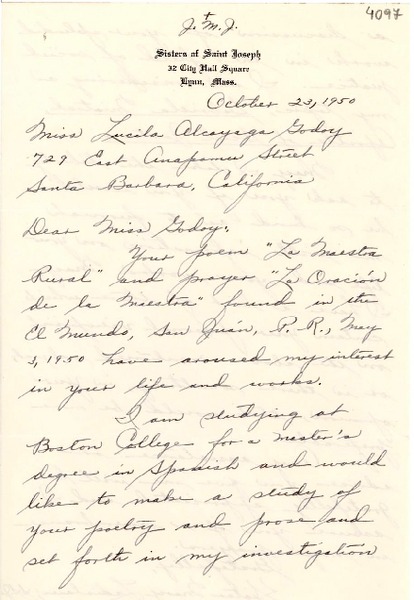 4097
J. M. J.
Sisters of Saint Joseph
32 City Hall Square
Lynn, Mass.
October 23, 1950
Miss Lucila Alcayaga Godoy
729 East Anapamu Street
Santa Barbara, California
Dear Miss Godoy:
Your poem "La Maestra
Rural" and prayer "La Oración
de la Maestra" found in the
El Mundo, San Juán, P. R., May
3, 1950 have aroused my interest
in your life and works.
I am studying at
Boston College for a master's
degree in Spanish and would
like to make a study of
your poetry and prose and
set forth in my investigation